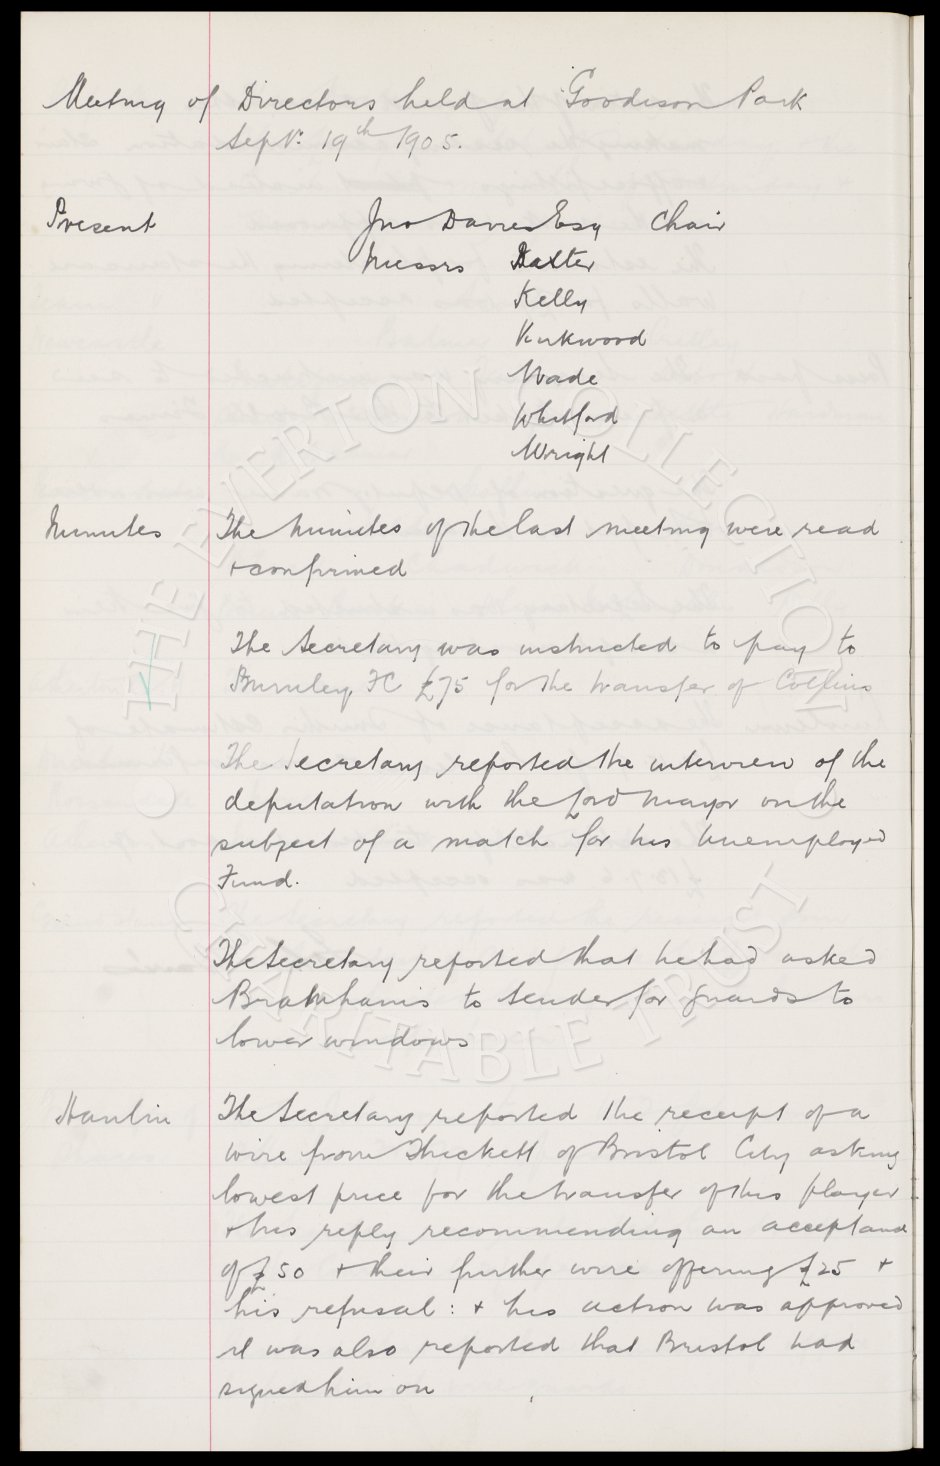 Meeting of Directors held at Goodison Park
Sept. 19th 1905.
Present Jno Davies Esq Chair
Messrs Baxter
Kelly
Kirkwood
Wade
Whitford
Wright
Minutes The Minutes of the last meeting were read
+ confirmed
The Secretary was instructed to pay to
Burnley FC £75 for the transfer of Collins
The Secretary reported the interview of the
deputation with the Lord Mayor on the
subject of a match for his Unemployed
Fund.
The Secretary reported that he had asked
to tender for guards to
lower windows
Hanlin The Secretary reported the receipt of a
wire from Thickett of Bristol City asking
lowest price for the transfer of this player
+ his reply recommending an acceptance
of £50 + their further wire offering £25 +
his refusal : + his action was approved
it was also reported that Bristol had
signed him on
THE EVERTON COLLECTION
CHARITABLE TRUST